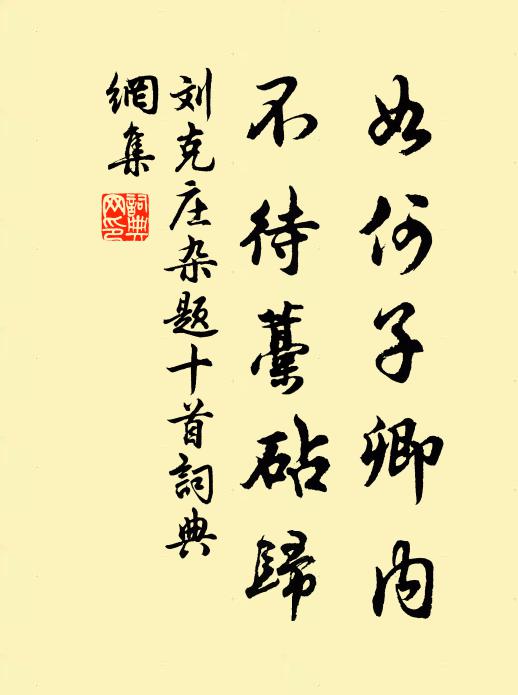 如何子卿内
不待藁砧歸
刘克庄杂题十首詞典
網集
詞典
网印